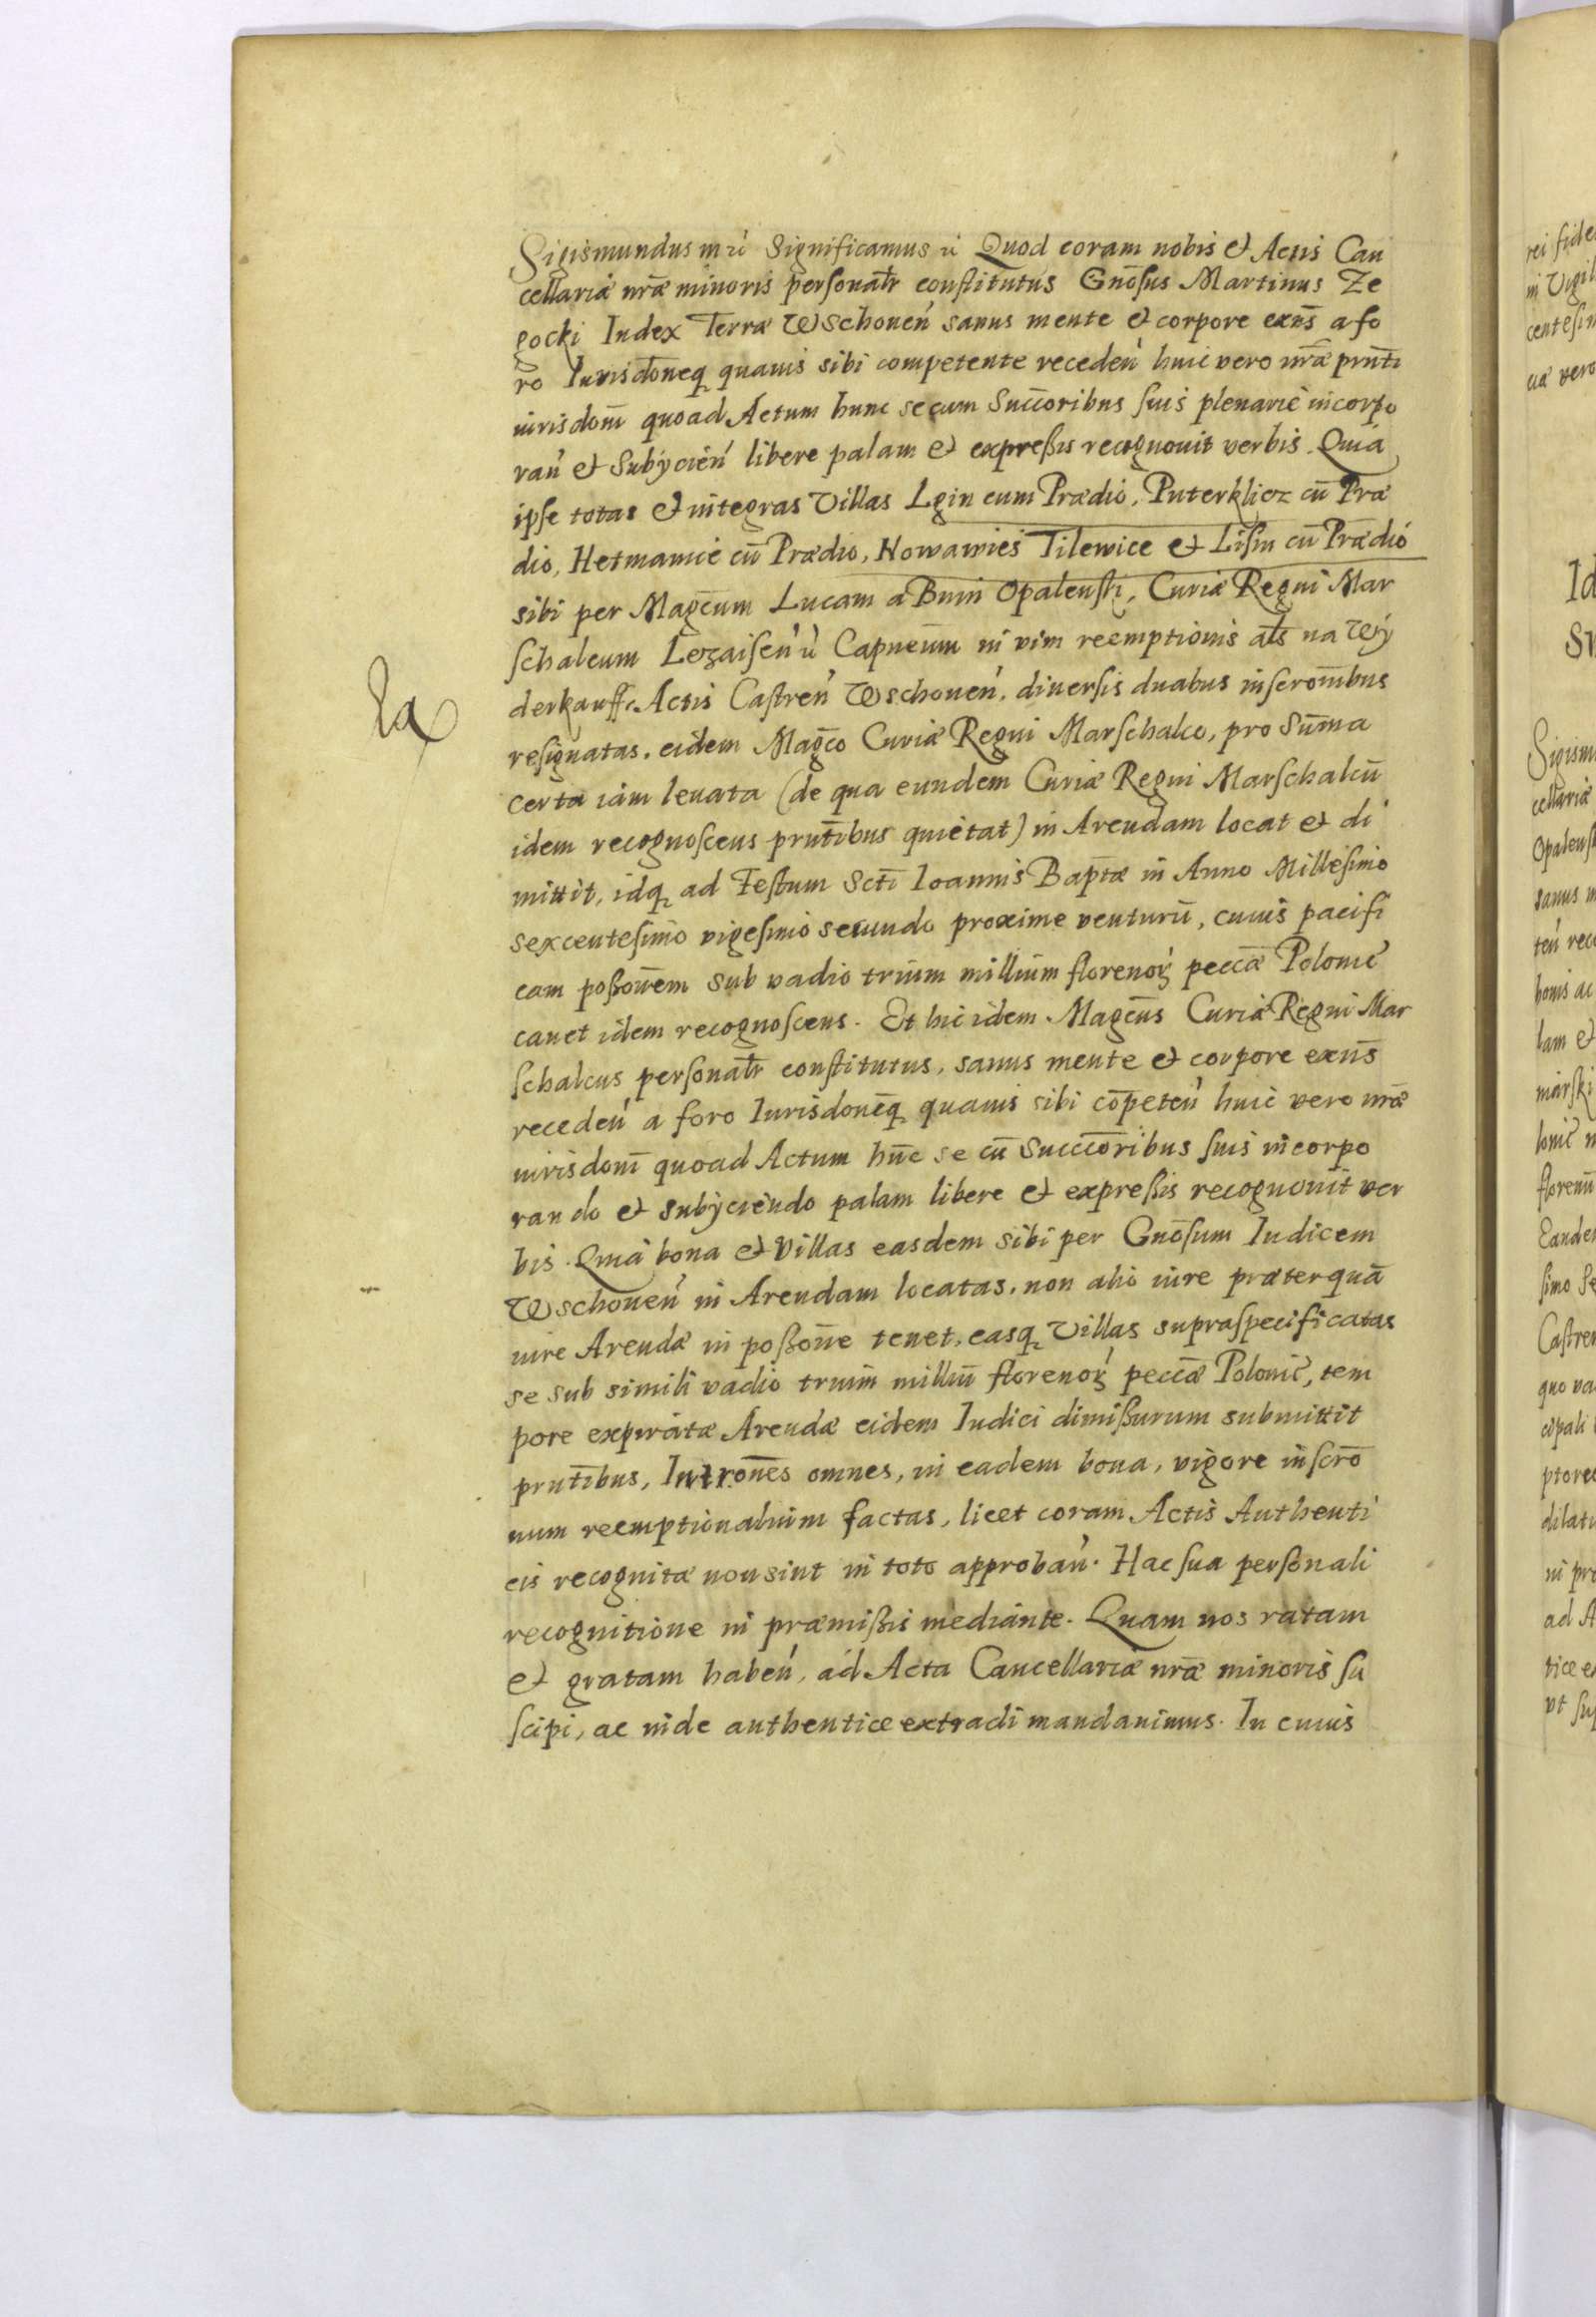 Sigismundus III ⁊ Significamus ⁊ Quod coram nobis et Actis Can
cellariæ nr̄æ minoris personalr̄ constitutus Gn̄osus Martinus Ze
gocki Iudex Terræ Wschouen̄ sanus mente et corpore exn̄s a fo
ro Iurisdōneq quauis sibi competente receden̄ huic vero nr̄æ prn̄ti
iurisdoni quoad Actum hunc se cum Succ̄oribus suis plenarie incorpo
ran̄ et Subycien̄ libere palam et expressis recognouit verbis. Quia
ipse totas et integras Villas Lgin cum Prædio, Puterklicz cū Præ
dio, Hetmanice cū Prædio, Nowawies Tilewice et Lisin cū Prædio
sibi per Magc̄um Lucam a Bnin Opalenski, Curiæ Regni Mar
schalcum Lezaisen̄ ⁊ Capneūm in vim reemptionis als̄ na Wÿ
derkauff Actis Castren̄ Wschouen̄, diuersis duabus inscronībus
resignatas, eidem Magc̄o Curiæ Regni Marschalco, pro Sum̄a
certa iam leuata (de qua eundem Curiæ Regni Marschalcū
idem recognoscens prntībus quietat) in Arendam locat et di
mittit, idq ad Festum Sctī Ioannis Bapt̄æ in Anno Millesimo
sexcentesimo vigesimo secundo proxime venturū, cuius pacifi
cam possonēm sub vadio trium millium florenoꝝ pecc̄æ Polonic̄
cauet idem recognoscens. Et hic idem Magcūs Curiæ Regni Mar
schalcus personalr̄ constitutus, sanus mente et corpore exn̄s
receden̄ a foro Iurisdonēq quauis sibi cōpeten̄ huic vero nr̄æ
iurisdoni quoad Actum hūc se cū Succc̄oribus suis incorpo
rando et subÿciendo palam libere et expressis recognouit ver
bis. Quia bona et Villas easdem sibi per Gnōsum Iudicem
Wschouen̄ in Arendam locatas, non alio iure præterquā
iure Arendæ in possonē tenet, easq Villas supraspecificatas
se sub simili vadio trium milliū florenoꝝ pecc̄æ Polonic̄, tem
pore expiratæ Arendæ eidem Iudici dimissurum submittit
prntībus, Intronēs omnes, in eadem bona, vigore inscrō
num reemptionalium factas, licet coram Actis Authenti
cis recognitæ non sint in toto approban̄. Hac sua personali
recognitione in præmissis mediante. Quam nos ratam
et gratam haben̄, ad Acta Cancellariæ nr̄æ minoris su
scipi, ac inde authentice extradi mandauimus. In cuius